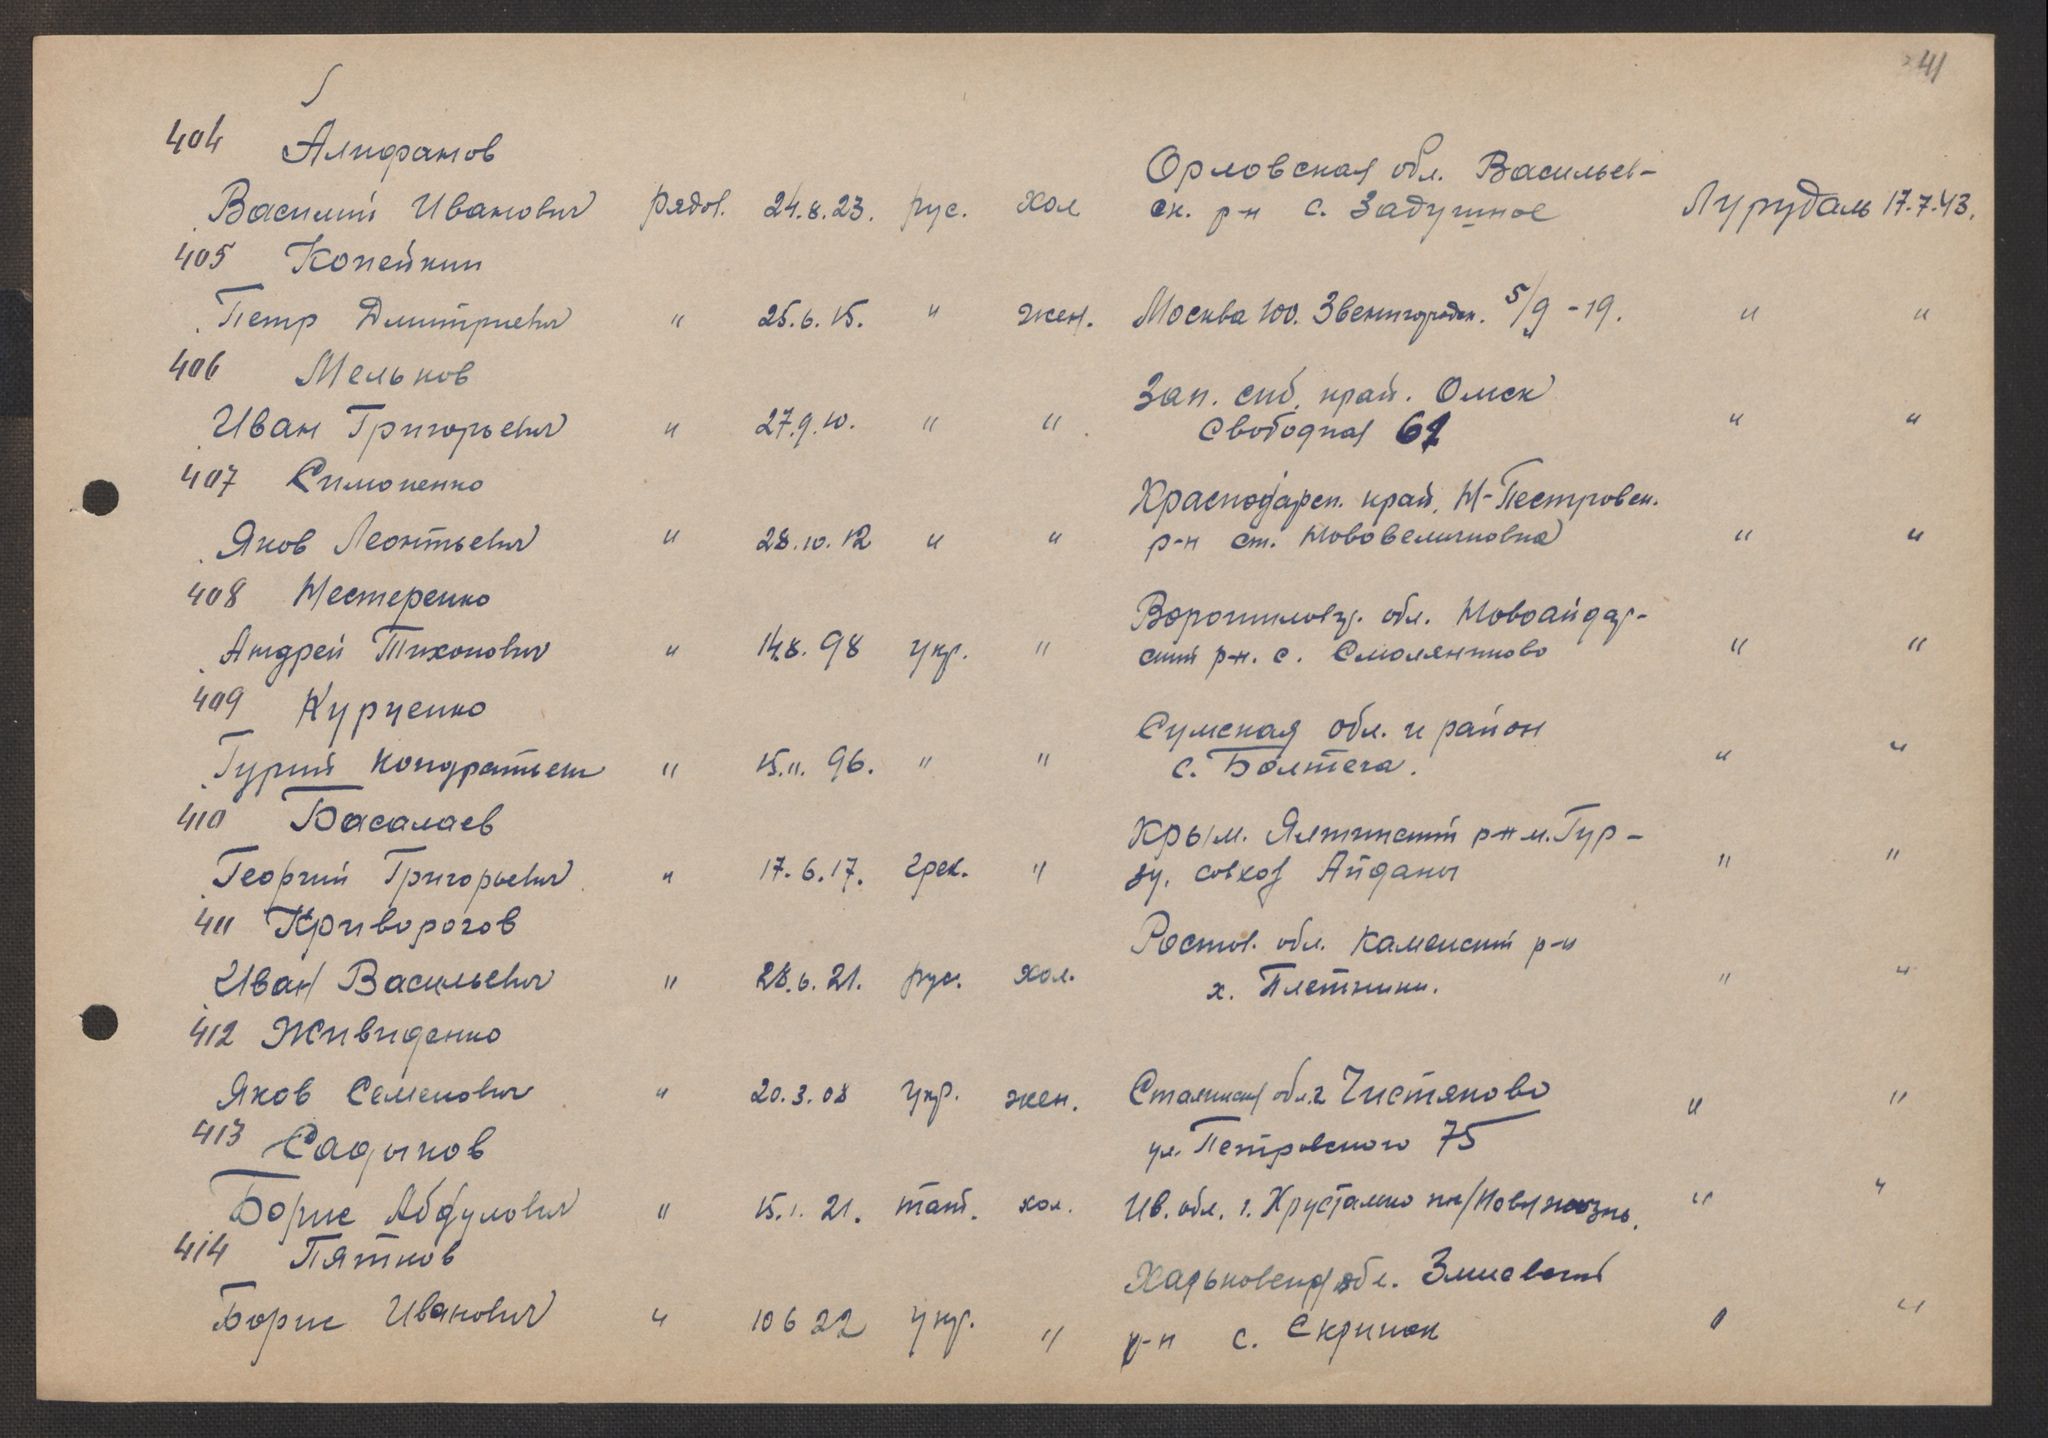 41
404 Алифанов
Орловская обл. Васильев-
Василий Иванович рядов. 24.8.23. рус. хол ск. р-н с. Задушное Лурудаль 17.7.43.
405 Копейкин
Петр Дмитриевич " 25.6.15. " жен. Москва 100. Звенигородск. 5/9 - 19. " "
406 Мельков
Зап. сиб. край. Омск
Иван Григорьевич " 27.9.10. " " Свободная 61 " "
407 Симоненко
Краснодарск. край, Н-Пестровск.
Яков Леонтьевич " 28.10.12 " " р-н ст. Нововеличковка " "
408 Нестеренко
Ворошиловг. обл. Новоайдар-
Андрей Тихонович " 14.8.98 укр. " ский р-н. с. Смоляниново " "
409 Курченко
Сумская обл. и район
Гурий Кондратьев " 15.11.96. " " с. Болтега. " "
410 Басалаев
Крым. Ялтинский р-н м. Гур-
Георгий Григорьевич " 17.6.17. грек. " зу. совхоз Айданы " "
411 Криворогов
Ростов. обл. Каменский р-н
Иван Васильевич " 28.6.21. рус. хол. х. Плетники. " "
412 Живиденко
Яков Семенович " 20.3.08 укр. жен. Сталинская обл. г. Чистяково " "
413 Садыков
ул. Петровского 75
Борис Абдулович " 15.1.21. тат. хол. Ив. обл. г. Хрустально " "
414 Пятков
Харьковская обл. Змиевский
Борис Иванович " 10 6 22 укр. " р-н с. Скрипок " "